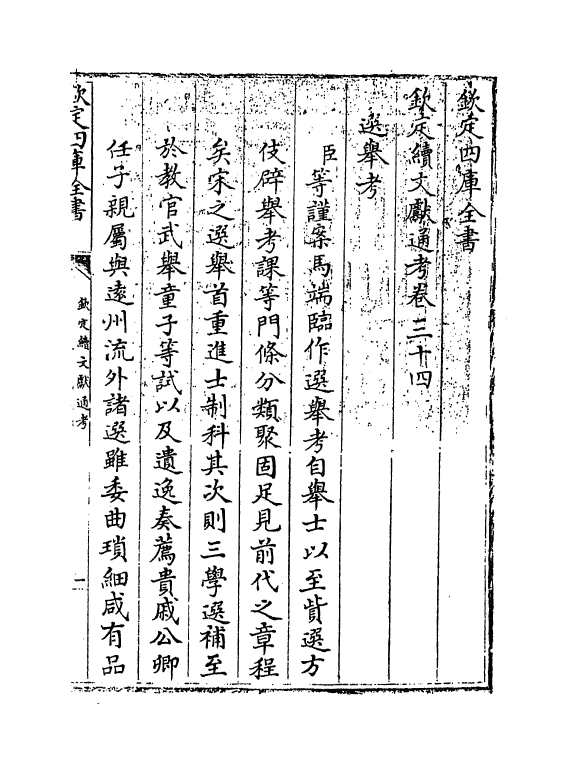 欽定四庫全書
欽定續文獻通考卷三十四
選舉考
臣等謹案馬端臨作選舉考自舉士以至貲選方
伎辟舉考課等門條分類聚固足見前代之章程
矣宋之選舉首重進士制科其次則三學選補至
於教官武舉童子等試以及遺逸奏薦貴戚公卿
任子親屬與遠州流外諸選雖委曲瑣細咸有品
欽定四庫全書
欽定續文獻通考
一